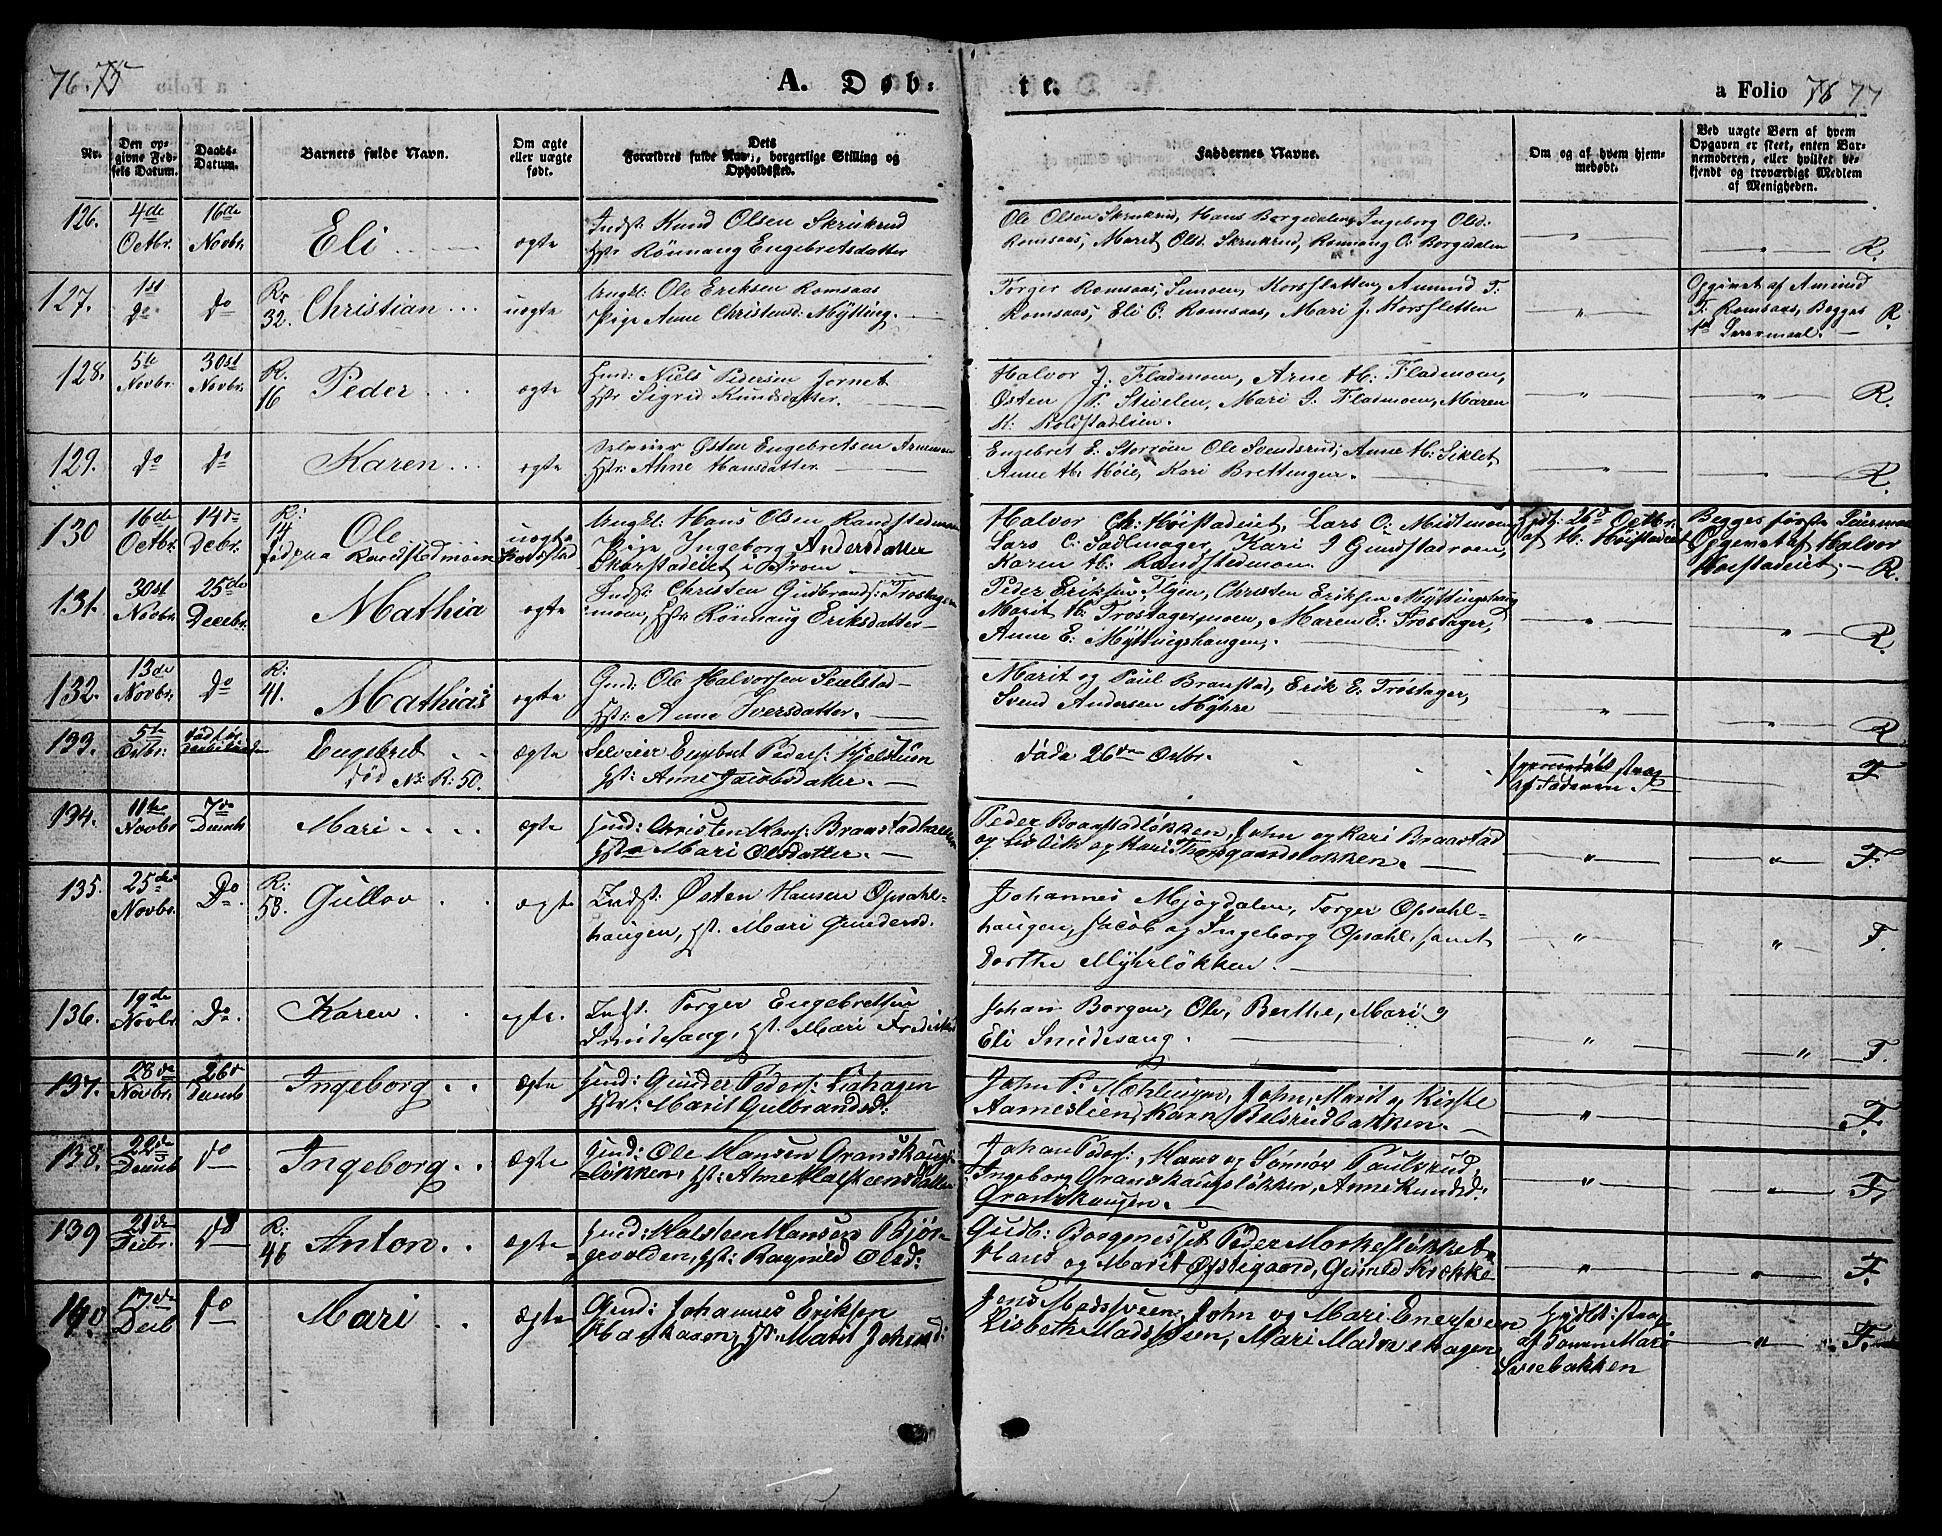 76. 75
A. Døb=
te.
a Folio 76 77
Nr.
Den op-
givne Fød-
sels Datum.
Daabs-
Datum.
Barnets fulde Navn.
Om ægte
eller uægte
født.
Dets
Forældres fulde Navn, borgerlige Stilling og
Opholdssted.
Faddernes Navne.
Om og af hvem hjem-
medøbt.
Ved uægte Børn af hvem
Opgaven er skeet, enten Bar-
nemoderen, eller hvilket be-
kjendt og troværdigt Medlem
af Menigheden.
126. 4de Octbr. 16de Novbr. Eli ægte
Indst: Knud Olsen Skrukrud
Hstr Rönnaug Engebretsdatter
Ole Olsen Skrukrud, Hans Borgedalen, Ingeborg Olsd:
Romsaas, Marit Olsd. Skrukrud, Rönnaug O: Borgedalen
" " R.
127. 1st Do. Do R: 32. Christian uægte
Ungkl: Ole Eriksen Romsaas
Pige Anne Christensd: Mÿtting.
Torger Romsaas, Simoen, Horsfletten, Amund T:
Romsaas, Eli O. Romsaas, Mari J. Horsfletten
"
Opgivet af Amund
T. Romsaas, Begges
1st Leiermaal. R.
128. 5te Novbr. 30st Novbr. R: 16 Peder ægte
Gmd: Niels Pedersen Jornet
Hstr Sigrid Knudsdatter.
Halvor J: Flademoen, Arne H: Flademoen,
Østen P: Stuelen, Mari J. Flademoen, Maren
K: Koldstadlien.
" " R.
129. Do Do Karen ægte
Selveier Østen Engebretsen Arnemoen
Hstr: Anne Hansdatter
Engebret E. Storröen Ole Svendsrud, Anne H: Siklet,
Anne H: Höie, Kari Brettingen.
" " R.
130 16de Octbr. 14de Debr. R: 14 Ole uægte
Född paa Randstedmoen
Ungkl: Hans Olsen Randstedmoen
Pige Ingeborg Andersdatter
Halvor Ch: Höistadeiet, Lars O: Midtmoen,
Lars C: Sadlmager, Kari J Gundstadmoen,
Karen H: Randstedmoen.
Hjdt. 26d Octbr.
af H. Höistadeiet
Begges förste Leiermaal
Opgivet af Halvor
Höistadeiet. R.
131. 30st Novbr. 25de Decbr. Mathia ægte
Indst: Christen Gudbrands: Trostager-
moen, Hstr Rönnaug Eriksdatter
Peder Eriksen Flÿen, Christen Eriksen Mÿttingshaug
Marit H: Trostagermoen, Maren E: Trostager,
Anne E: Mÿttingshaugen,
" " R.
132. 13de Novbr. Do R: 41. Mathias ægte
Gmd: Ole Halvorsen
Hstr: Anne Iversdatter.
Marit og Paul Braastad, Erik E. Tröstager,
Svend Andersen Mÿhre
" " R
133. 5te Octbr. Engebret ægte
død No: R: 50.
Selveier Pedersf: Kjelstuen
Hst: Anne Jacobsdatter.
Døde 26de Octbr.
af Faderen. F
134. 11te Novbr 7de Decmb Mari ægte
Gmd: Christen Hans: Braastad
Hstr Mari Olsdatter.
Peder Braastadløkken, John og Kari Braastad
og Lislik og Kari Thorsgaardsløkken.
" " F.
135. 25de Novbr. Do. R: 58. Gullov ægte
Indst: Østen Hansen Opsahl-
haugen, Hst. Mari Gundersd.
Johannes Mjøgdalen, Torger Opsahl-
haugen, Jacob og Ingeborg Opsahl, samt
Dorthe Myhrløkken.
" " F.
136. 19de Novbr. Do. Karen ægte.
Indst. Torger Engebretsen
Smidesang, Hst. Mari
Johan Borgen, Ole, Berthe, Mari og
Eli Smidesang.
" " F.
137. 28de Novbr. 26d Decmb Ingeborg ægte
Gmd: Gunder Peders: Liahagen
Hstr: Marit Gulbrandsd:
John P: Mæhlingen, John, Marit og Kirstie
Aarneslien, Karn Beldrudbakken.
" F.
138. 22de Decmb do Ingeborg ægte
Gmd: Ole Hansen Granshaugs-
løkken, Hst: Anne Halsteensdatter
Johan Peders:, Hans og Sønnøv Paulsrud,
Ingeborg Granshaugsløkken, Anne Knudsd:
Granshaugen.
" " F.
139 21de Debr. Do R: 46 Anton ægte
Gmd: Halsteen Hansen Bjør-
gevolden, Hst: Ragnild Olsd:
Gudb: Borgenesset Peder Morkestøkket
Hans og Marit Østegaard, Gunild Krække
" " F.
140 17de Decb do Mari ægte
Gmd: Johannes Eriksen
Hst: Marit
Jens Madssveen, John og Mari Enersveen
Lisbeth Madssveen, Mari Madssvehagen
Hjdt: strax
af Mari
Sveebakken
" F.